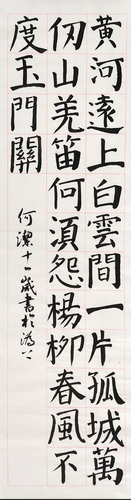 黃河遠上白雲間一片孤城萬
仞山羌笛何須怨楊柳春風不
度玉門關
何潔十一歲書於